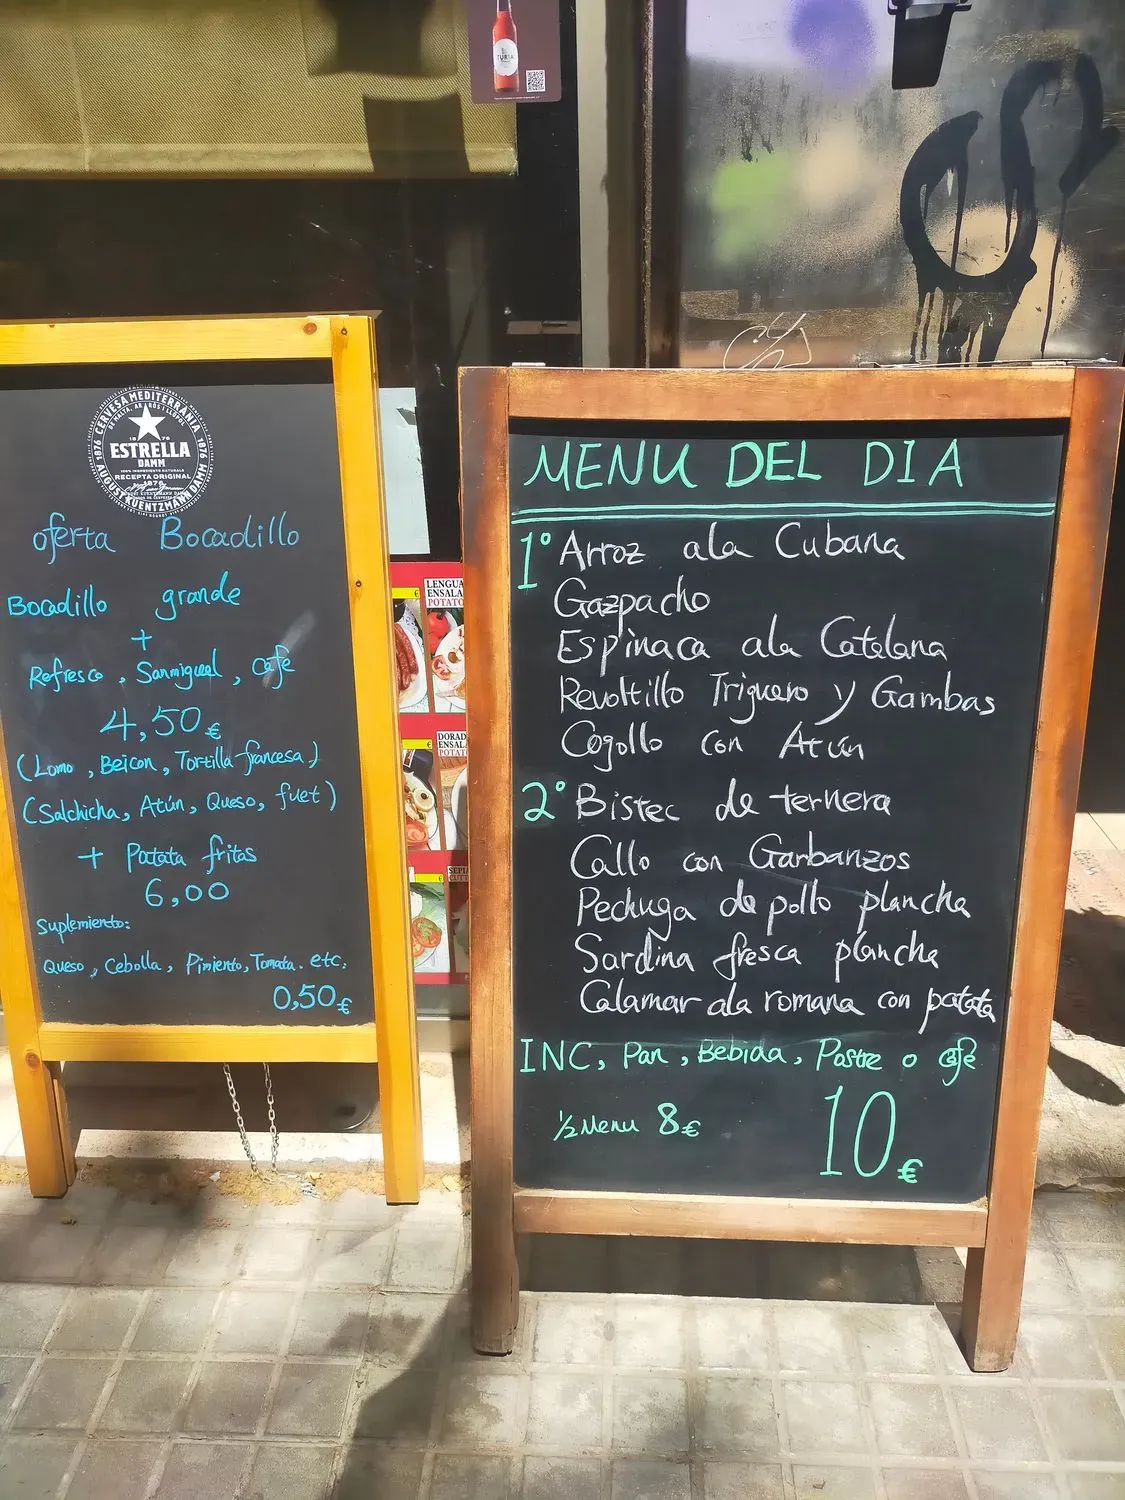 TURIA
CERVESA MEDITERRÀNIA
1876
1876
ESTRELLA
DAMM
RECEPTA ORIGINAL
1876
AUGUST KUENTZMANN DAMM
oferta Bocadillo
Bocadillo grande
+
Refresco, Sanmiguel, cafe
4,50€
(Lomo, Beicon, Tortilla francesa)
(Salchicha, Atún, Queso, fuet)
+ Patata fritas
6,00
Suplemiento:
Queso, Cebolla, Pimiento, Tomata. etc.
0,50€
€
LENGUA
ENSALA
POTATO
€
DORAD
ENSAL
POTAT
€
SEPIA
MENU DEL DIA
1º Arroz ala Cubana
Gazpacho
Espinaca ala Catelana
Revoltillo Triguero y Gambas
Cogollo con Atún
2º Bistec de ternera
Callo con Garbanzos
Pechuga de pollo plancha
Sardina fresca plancha
Calamar ala romana con patata
INC, Pan, Bebida, Postre o café
½ Menu 8€ 10€